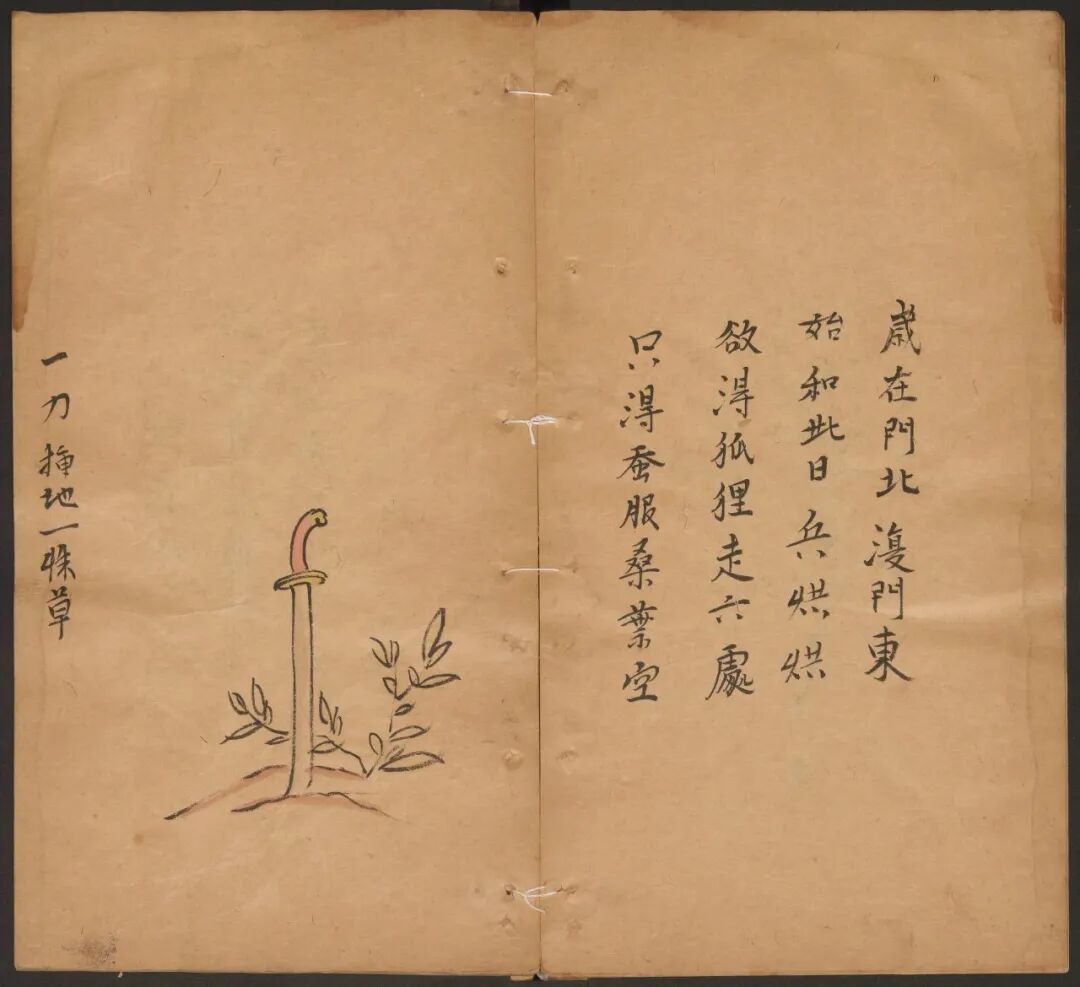 歳在門北復門東
始和此日兵烘烘
欲淂狐狸走六處
只淂蚕服桑葉空
一刀揷地一株草